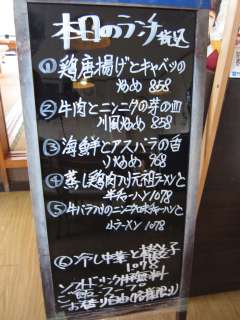 本日のランチ 税込
① 鶏唐揚げとキャベツの
炒め 858
② 牛肉とニンニクの芽の四
川風炒め 858
③ 海鮮とアスパラの香
り炒め 968
④ 蒸し鶏肉入り元祖ラーメンと
半チャーハン 1078
⑤ 牛バラ入りのニンニク味チャーハンと
小ラーメン 1078
⑥ 冷し中華と
1078
ソフトドリンク1杯無料
ご飯・スープ
おかわり自由